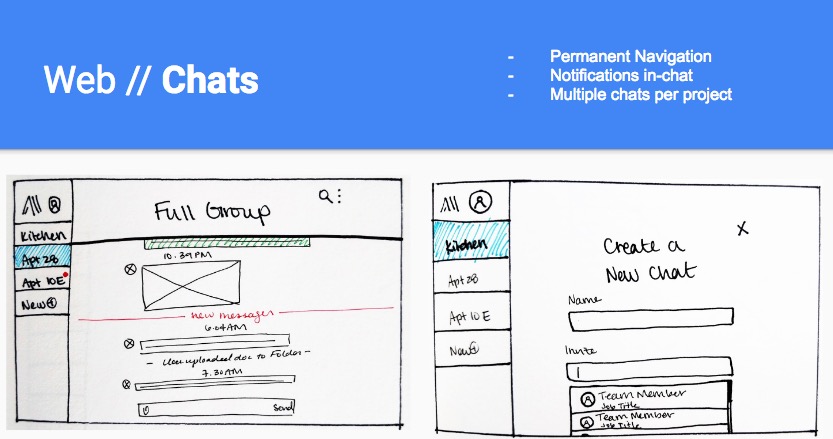 Web // Chats
- Permanent Navigation
- Notifications in-chat
- Multiple chats per project
All
Kitchen
Apt 2B
Apt 10E
New
Full Group
10:39PM
new messages
6:04AM
- User uploaded doc to Folder -
7:30AM
Send
All
Kitchen
Apt 2B
Apt 10E
New
X
Create a
New Chat
Name
Invite
Team Member
Job Title
Team Member
Job Title